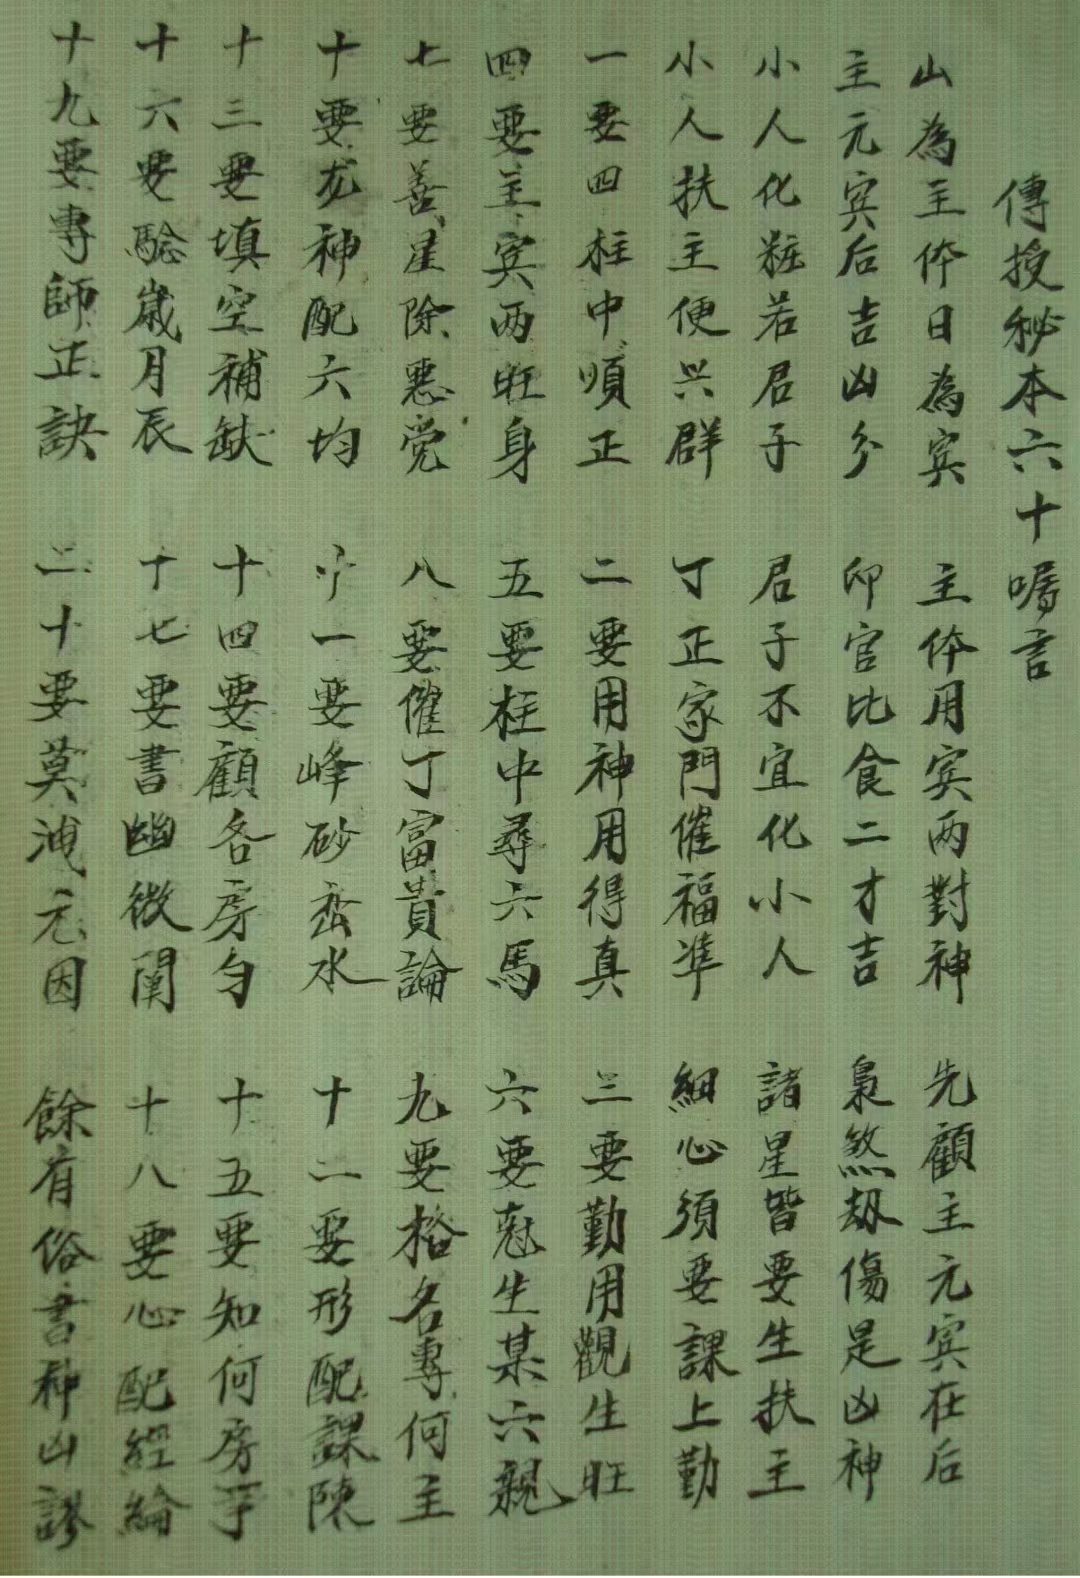 傳授秘本六十嘱言
山為主体日為宾 主体用宾两對神 先顧主元宾在后
主元宾后吉凶分 印官比食二才吉 梟煞劫傷是凶神
小人化粧若君子 君子不宜化小人 諸星皆要生扶主
小人扶主便兴群 丁正家門催福準 細心須要課上勤
一要四柱中順正 二要用神用得真 三要勤用觀生旺
四要主宾两旺身 五要柱中尋六馬 六要尅生某六親
七要善星除惡党 八要催丁富貴論 九要格名專何主
十要龙神配六均 十一要峰砂峦水 十二要形配課陳
十三要填空補缺 十四要顧各房匀 十五要知何房亨
十六要驗歲月辰 十七要書幽微闡 十八要心配經綸
十九要專師正訣 二十要莫洩元因 餘有俗書神凶謬